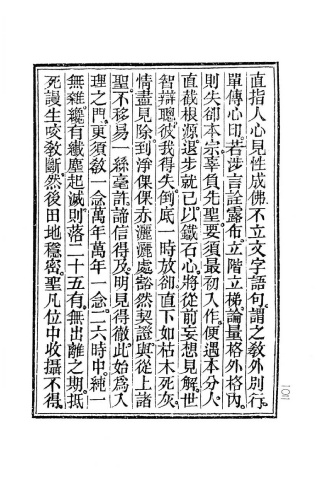 直指人心見性成佛不立文字語句謂之教外別行
單傳心印若涉言詮露布立階立梯論量格外格內
則失卻本宗辜負先聖要須最初入作便遇本分人
直截根源退步就己以鐵石心將從前妄想見解世
智辯聰彼我得失到底一時放卻直下如枯木死灰
情盡見除到淨倮倮赤灑灑處豁然契證與從上諸
聖不移易一絲毫許諦信得及明見得徹此始為入
理之門更須教一念萬年萬年一念二六時中純一
無雜纔有纖塵起滅則落二十五有無出離之期抵
死謾生咬教斷然後田地穩密聖凡位中收攝不得
101